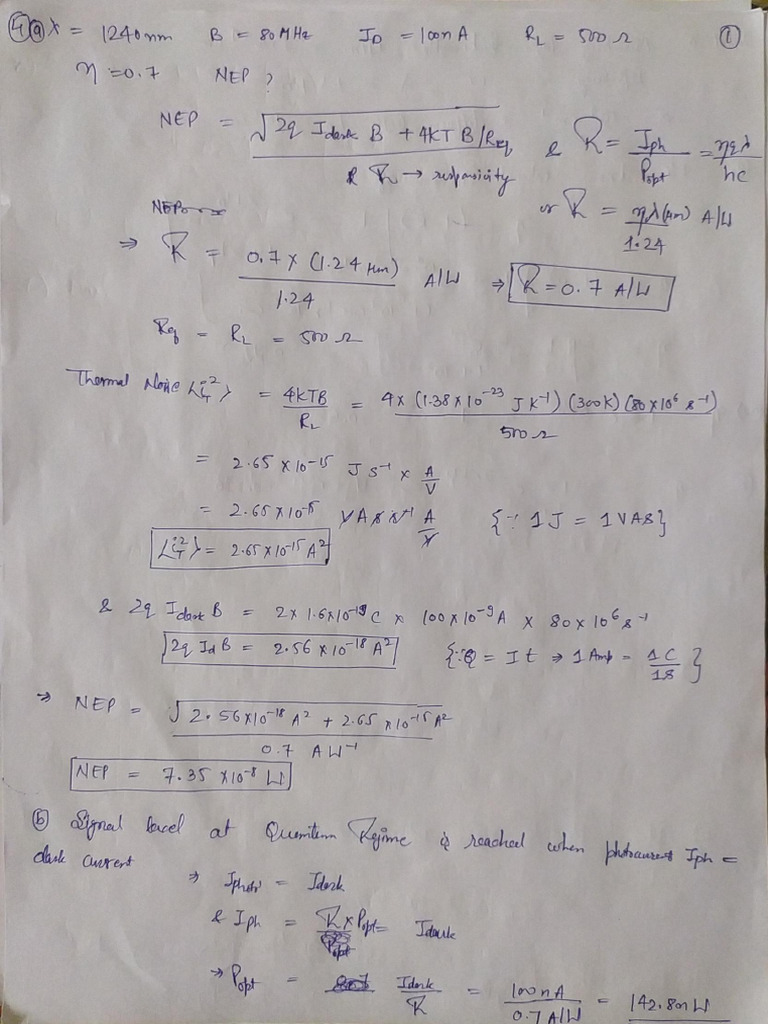 4 a λ = 1240 nm B = 80 MHz I_D = 100 nA R_L = 500 Ω ①
η = 0.7 NEP ?
NEP = √(2q I_dark B + 4KTB/R_eq) / R → responsivity & R = I_ph / P_opt = ηqλ / hc
or R = ηλ(μm) / 1.24 A/W
⇒ R = 0.7 × (1.24 μm) / 1.24 A/W ⇒ R = 0.7 A/W
R_eq = R_L = 500 Ω
Thermal Noise ⟨i_T²⟩ = 4KTB / R_L = 4 × (1.38 × 10⁻²³ J K⁻¹) (300 K) (80 × 10⁶ s⁻¹) / 500 Ω
= 2.65 × 10⁻¹⁵ J s⁻¹ × A/V
= 2.65 × 10⁻¹⁵ V A s s⁻¹ A/V {∵ 1 J = 1 VAS}
⟨i_T²⟩ = 2.65 × 10⁻¹⁵ A²
& 2q I_dark B = 2 × 1.6 × 10⁻¹⁹ C × 100 × 10⁻⁹ A × 80 × 10⁶ s⁻¹
2q I_d B = 2.56 × 10⁻¹⁸ A² {∵ Q = It ⇒ 1 Amp = 1C / 1S}
⇒ NEP = √(2.56 × 10⁻¹⁸ A² + 2.65 × 10⁻¹⁵ A²) / 0.7 A W⁻¹
NEP = 7.35 × 10⁻⁸ W
b Signal level at Quantum Regime is reached when photocurrent I_ph =
dark current
⇒ I_photo = I_dark
& I_ph = R × P_opt = I_dark
⇒ P_opt = I_dark / R = 100 nA / 0.7 A/W = 142.8 nW